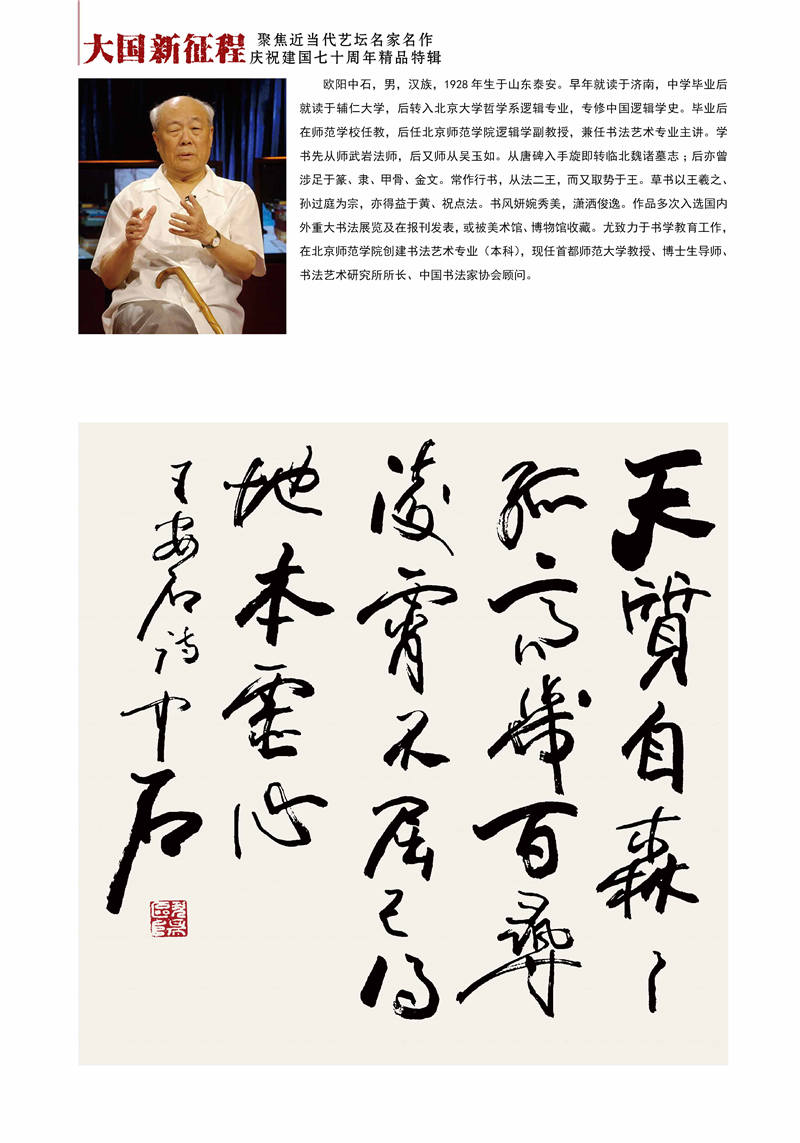 大国新征程
聚焦近当代艺坛名家名作
庆祝建国七十周年精品特辑
欧阳中石，男，汉族，1928年生于山东泰安。早年就读于济南，中学毕业后
就读于辅仁大学，后转入北京大学哲学系逻辑专业，专修中国逻辑学史。毕业后
在师范学校任教，后任北京师范学院逻辑学副教授，兼任书法艺术专业主讲。学
书先从师武岩法师，后又师从吴玉如。从唐碑入手旋即转临北魏诸墓志；后亦曾
涉足于篆、隶、甲骨、金文。常作行书，从法二王，而又取势于王。草书以王羲之、
孙过庭为宗，亦得益于黄、祝点法。书风妍婉秀美，潇洒俊逸。作品多次入选国内
外重大书法展览及在报刊发表，或被美术馆、博物馆收藏。尤致力于书学教育工作，
在北京师范学院创建书法艺术专业（本科），现任首都师范大学教授、博士生导师、
书法艺术研究所所长、中国书法家协会顾问。
天質自森〻
孤高幾百尋
凌霄不屈己得
地本虚心
王安石诗中石